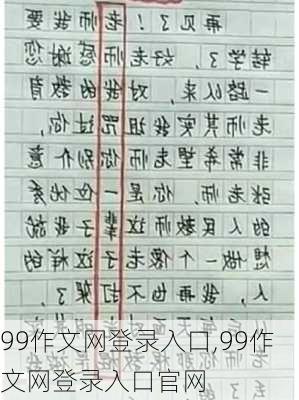 再见了！老师我要
转学了，好老师感谢您
一路以来，对我的教育
老师其实我诅咒过你，
非常希望老师你别介意
张老师，你是一位优秀
的人民教师这辈子我就
想做一个像老子这样的
人，我再也不打架了。
99作文网登录入口,99作
文网登录入口官网